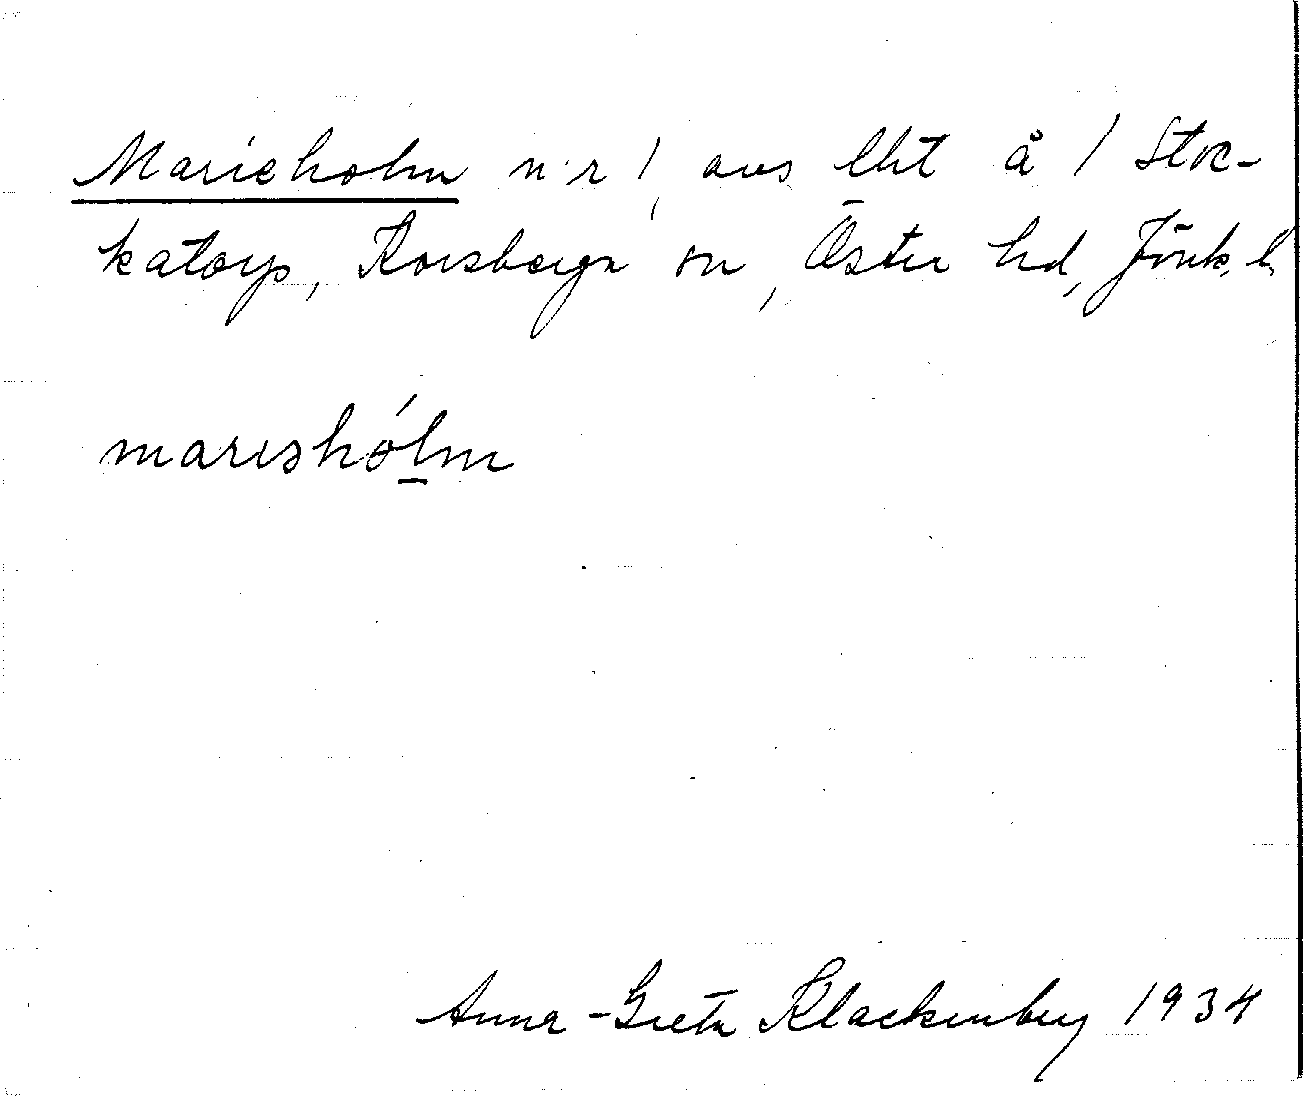 Marieholm n:r 1, avs lht å 1 Stoc-
katorp, Korsberga sn, Östra hd, Jönk. l.
marıshólm
Anna-Greta Klackenberg 1934